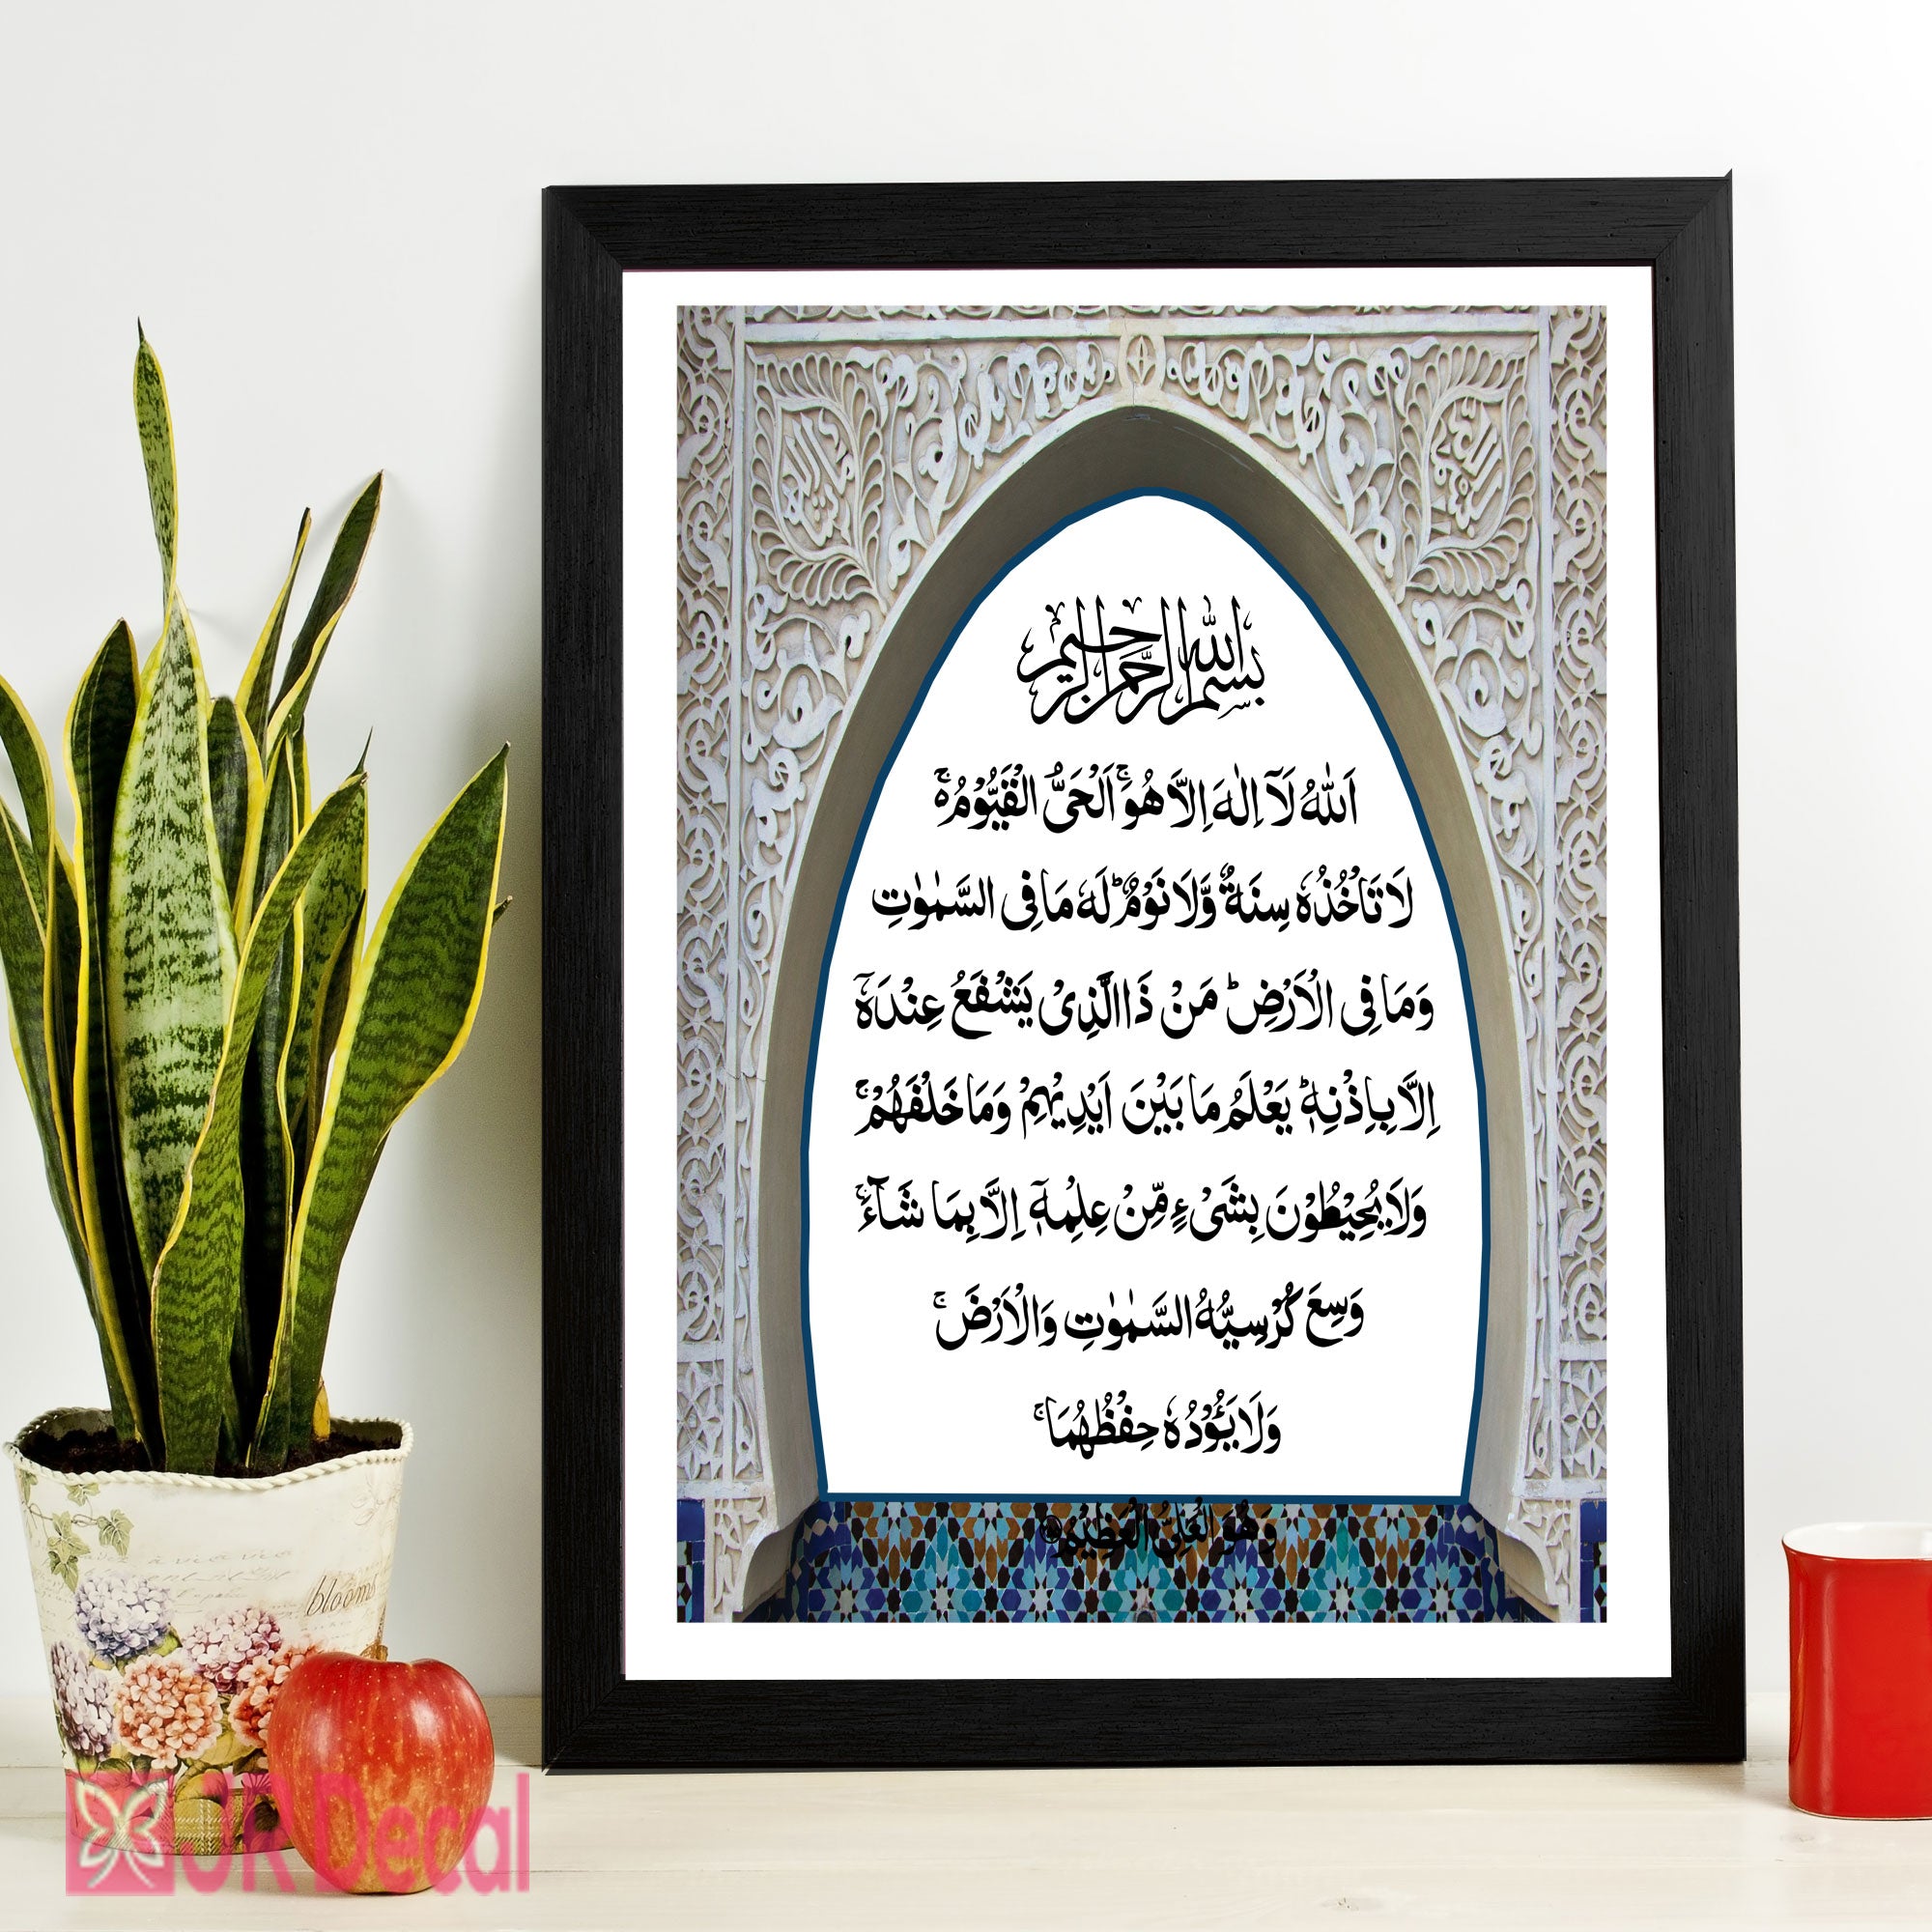 بسم الله الرحمن الرحيم
اَللّٰهُ لَآ اِلٰهَ اِلَّا هُوَ ۚ اَلْحَیُّ الْقَیُّوْمُ ەۚ
لَا تَاْخُذُهٗ سِنَةٌ وَّلَا نَوْمٌ ؕ لَهٗ مَا فِی السَّمٰوٰتِ
وَمَا فِی الْاَرْضِ ؕ مَنْ ذَا الَّذِیْ یَشْفَعُ عِنْدَهٗۤ
اِلَّا بِاِذْنِهٖ ؕ یَعْلَمُ مَا بَیْنَ اَیْدِیْهِمْ وَمَا خَلْفَهُمْ ۚ
وَلَا یُحِیْطُوْنَ بِشَیْءٍ مِّنْ عِلْمِهٖۤ اِلَّا بِمَا شَآءَ ۚ
وَسِعَ كُرْسِیُّهُ السَّمٰوٰتِ وَالْاَرْضَ ۚ
وَلَا یَـُٔوْدُهٗ حِفْظُهُمَا ۚ
وَهُوَ الْعَلِیُّ الْعَظِیْمُ
blooms
JR Decal